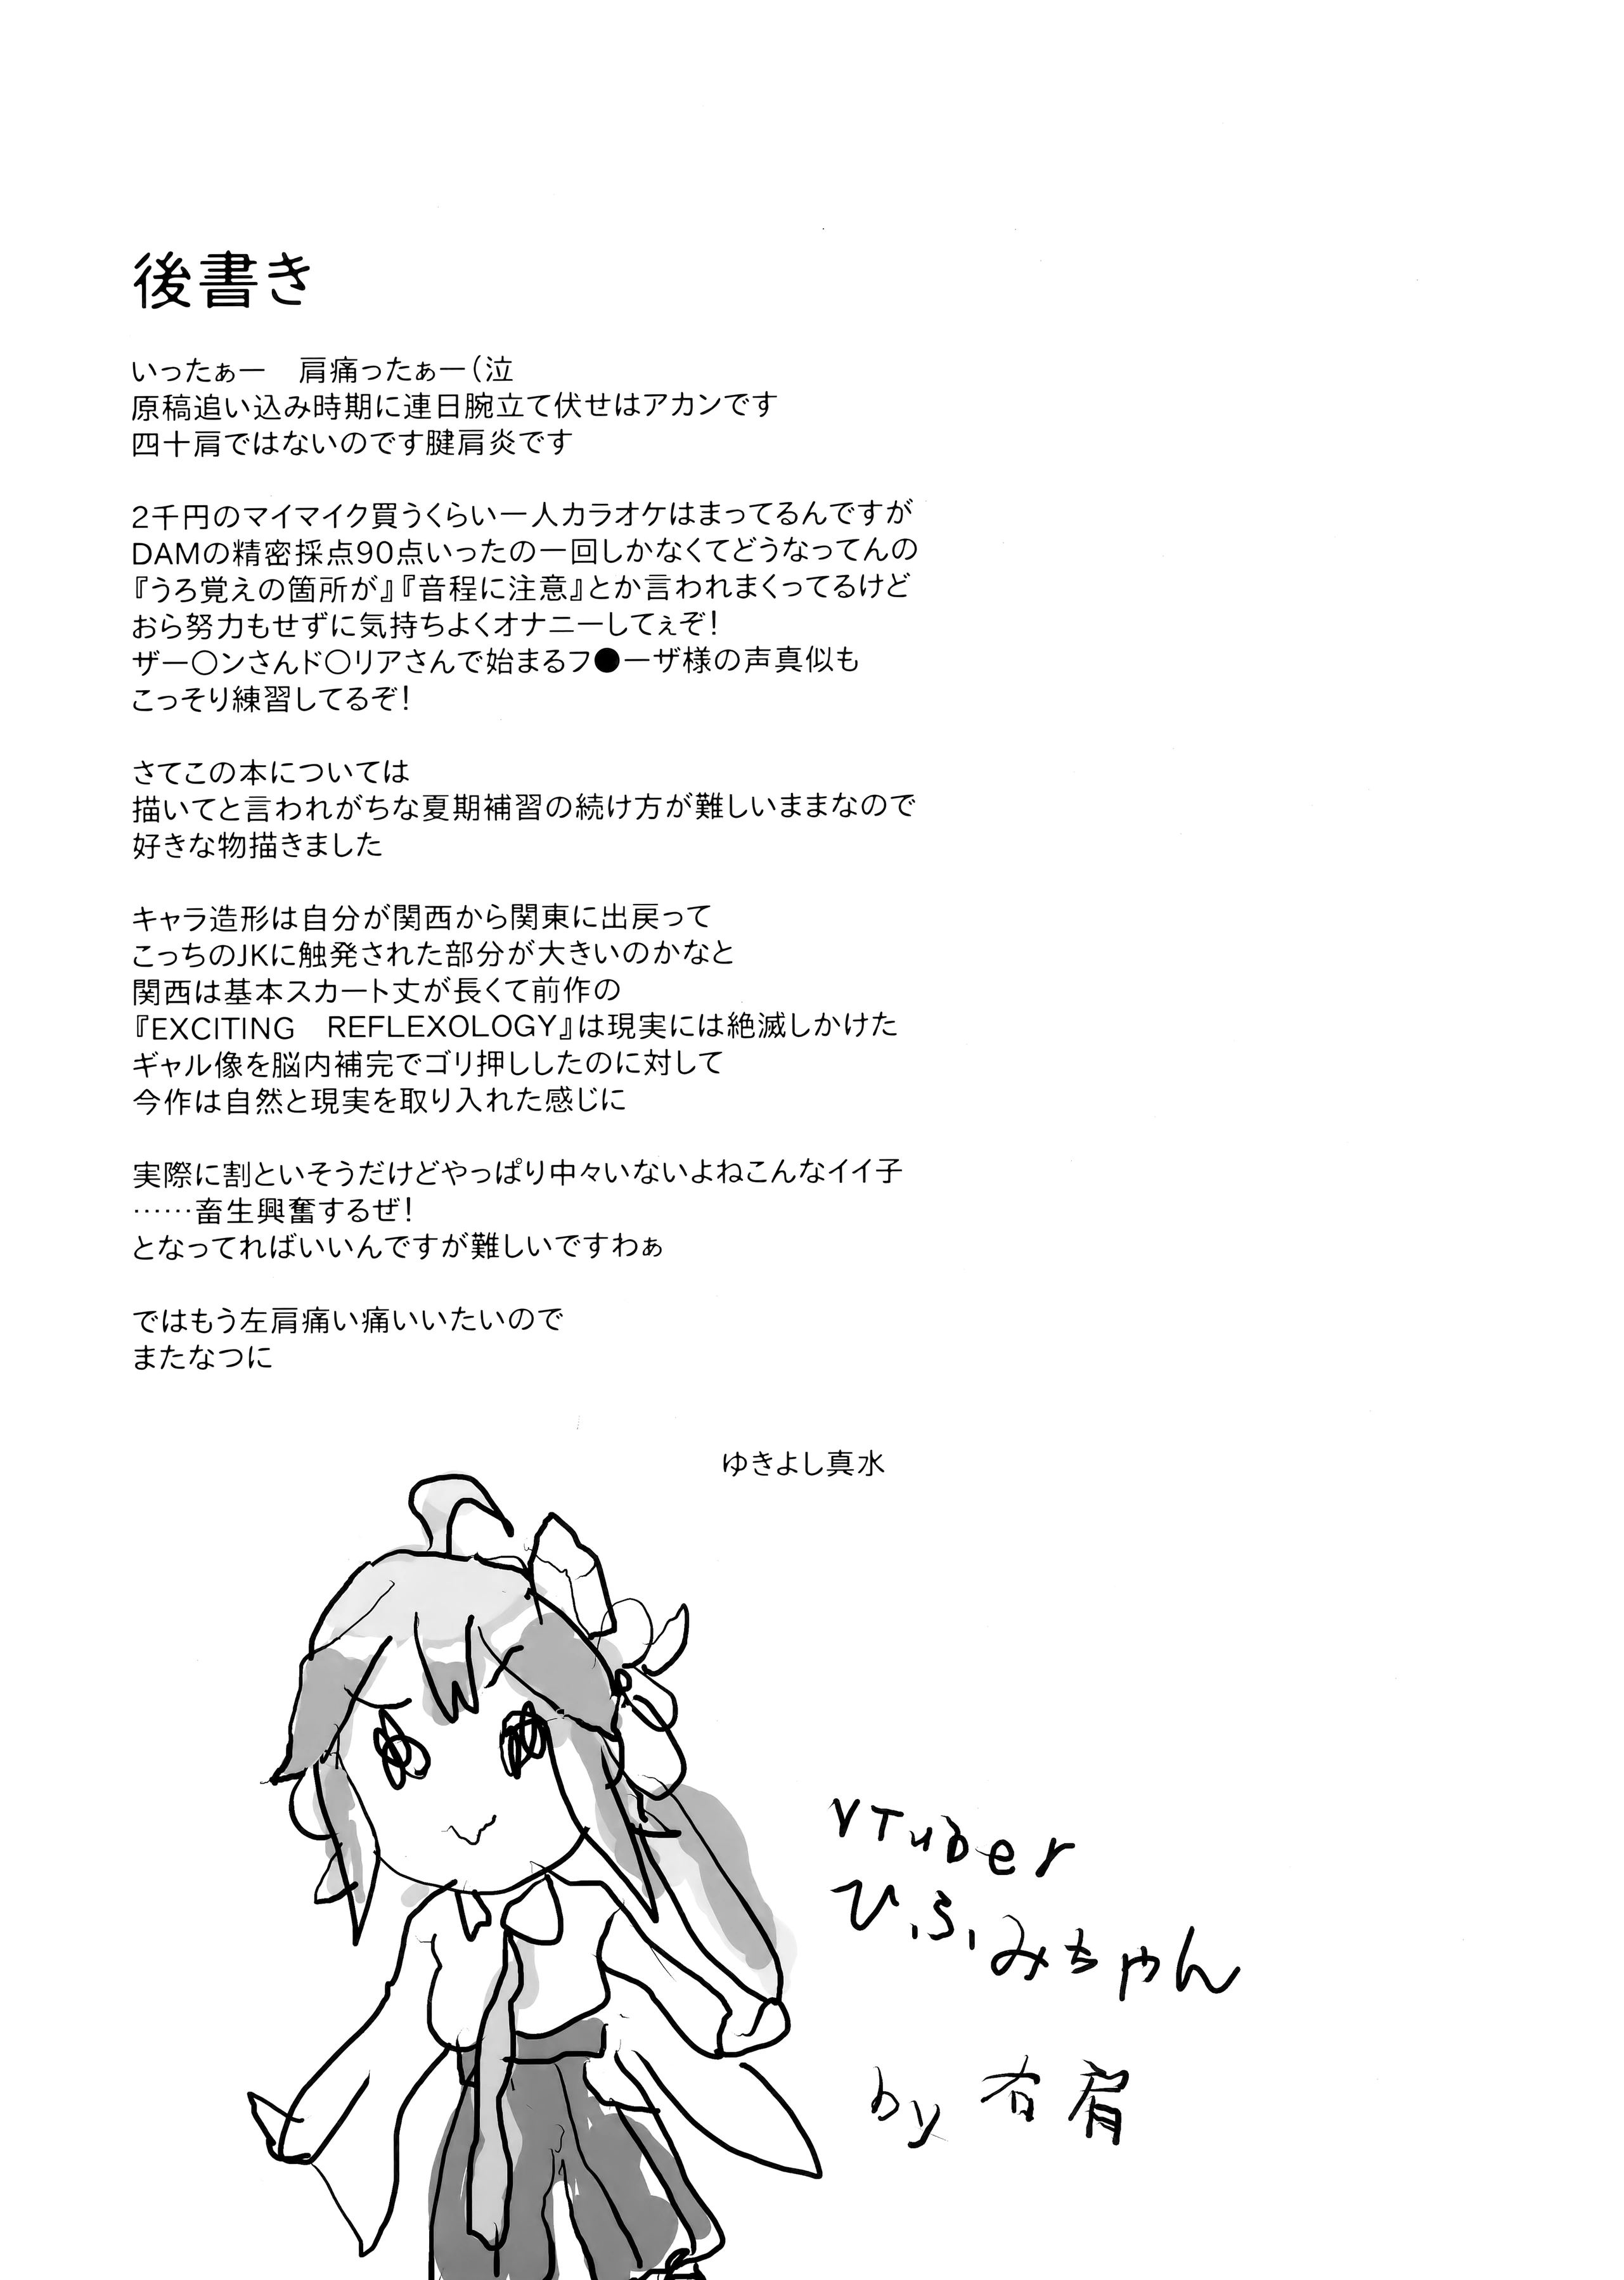 後書き
いったぁー　肩痛ったぁー（泣
原稿追い込み時期に連日腕立て伏せはアカンです
四十肩ではないのです腱肩炎です
2千円のマイマイク買うくらい一人カラオケはまってるんですが
DAMの精密採点90点いったの一回しかなくてどうなってんの
『うろ覚えの箇所が』『音程に注意』とか言われまくってるけど
おら努力もせずに気持ちよくオナニーしてぇぞ！
ザー〇ンさんド〇リアさんで始まるフ●ーザ様の声真似も
こっそり練習してるぞ！
さてこの本については
描いてと言われがちな夏期補習の続け方が難しいままなので
好きな物描きました
キャラ造形は自分が関西から関東に出戻って
こっちのJKに触発された部分が大きいのかなと
関西は基本スカート丈が長くて前作の
『EXCITING　REFLEXOLOGY』は現実には絶滅しかけた
ギャル像を脳内補完でゴリ押ししたのに対して
今作は自然と現実を取り入れた感じに
実際に割といそうだけどやっぱり中々いないよねこんなイイ子
……畜生興奮するぜ！
となってればいいんですが難しいですわぁ
ではもう左肩痛い痛いいたいので
またなつに
ゆきよし真水
VTuber
ひふみちゃん
by 右肩